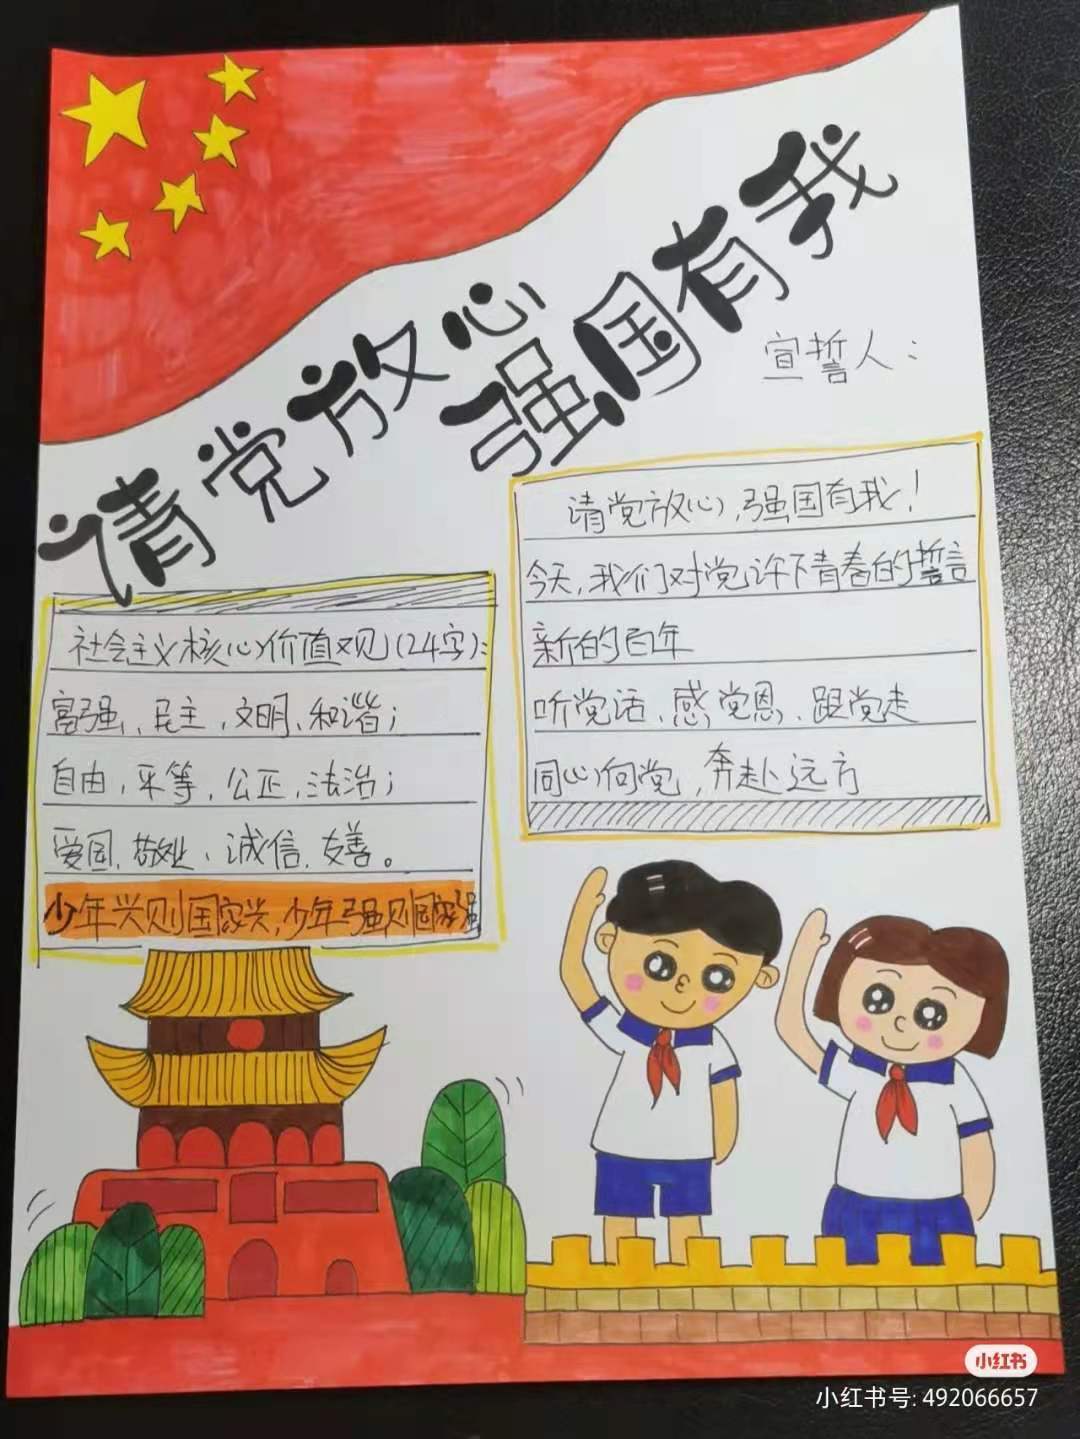 请党放心
强国有我
宣誓人:
请党放心,强国有我!
今天,我们对党许下青春的誓言
新的百年
听党话、感党恩、跟党走
同心向党,奔赴远方
社会主义核心价值观(24字):
富强、民主、文明、和谐;
自由、平等、公正、法治;
爱国、敬业、诚信、友善。
少年兴则国家兴,少年强则国家强
小红书
小红书号: 492066657